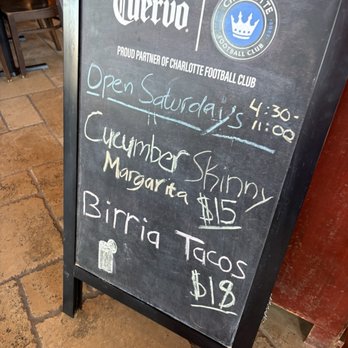 Cuervo
CHARLOTTE
FOOTBALL CLUB
PROUD PARTNER OF CHARLOTTE FOOTBALL CLUB
Open Saturday's 4:30-
11:00
Cucumber Skinny
Margarita $15
Birria Tacos
$18